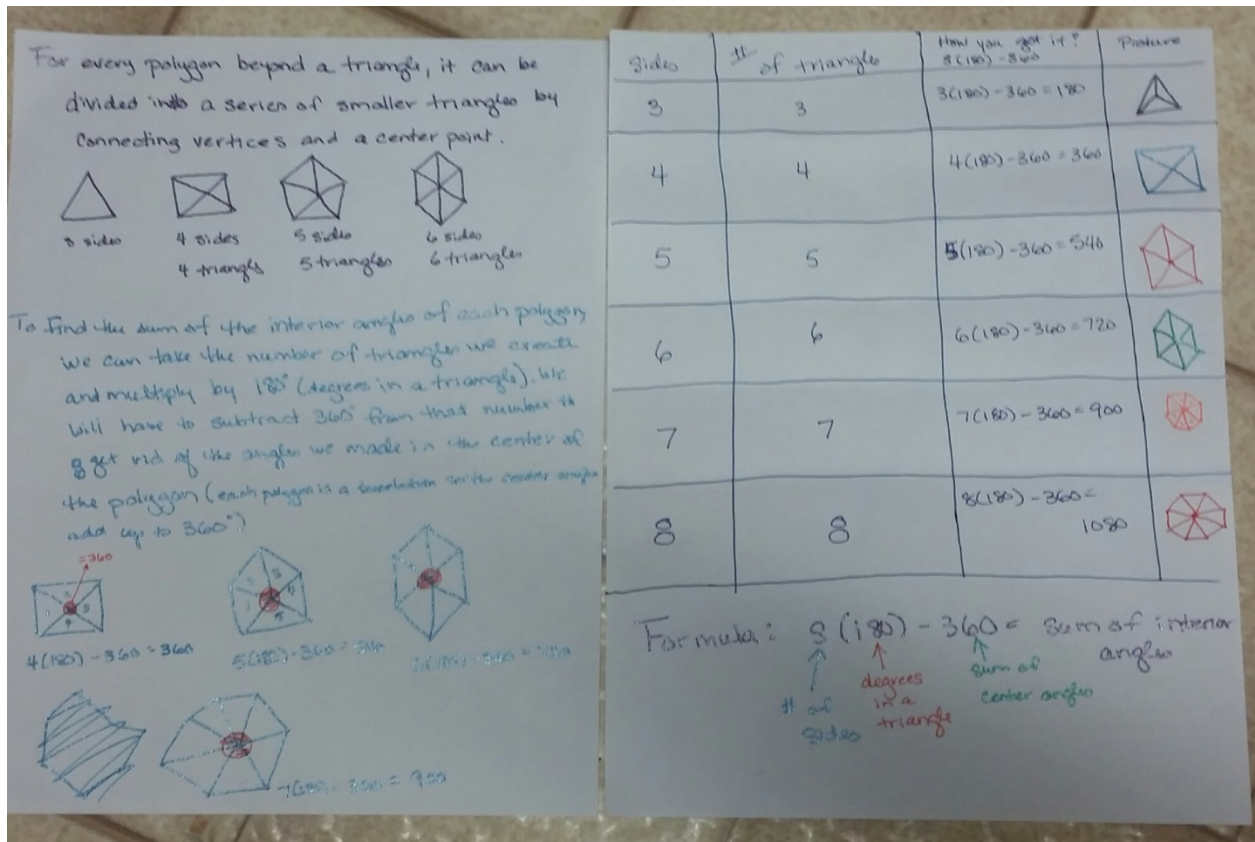 For every polygon beyond a triangle, it can be
divided into a series of smaller triangles by
connecting vertices and a center point.
3 sides
4 sides
4 triangles
5 sides
5 triangles
6 sides
6 triangles
To find the sum of the interior angles of each polygon,
we can take the number of triangles we create
and multiply by 180° (degrees in a triangle). We
will have to subtract 360° from that number to
get rid of the angles we made in the center of
the polygon (each polygon is a so the center angles
add up to 360°)
=360
4(180) - 360 = 360
5(180) - 360 = 540
7(180) - 360 = 900
Sides # of triangles How you got it? Picture
S(180) - 360
3 3 3(180) - 360 = 180
4 4 4(180) - 360 = 360
5 5 5(180) - 360 = 540
6 6 6(180) - 360 = 720
7 7 7(180) - 360 = 900
8 8 8(180) - 360 =
1080
Formula: S(180) - 360 = sum of interior
angles
# of
sides
degrees
in a
triangle
sum of
center angles